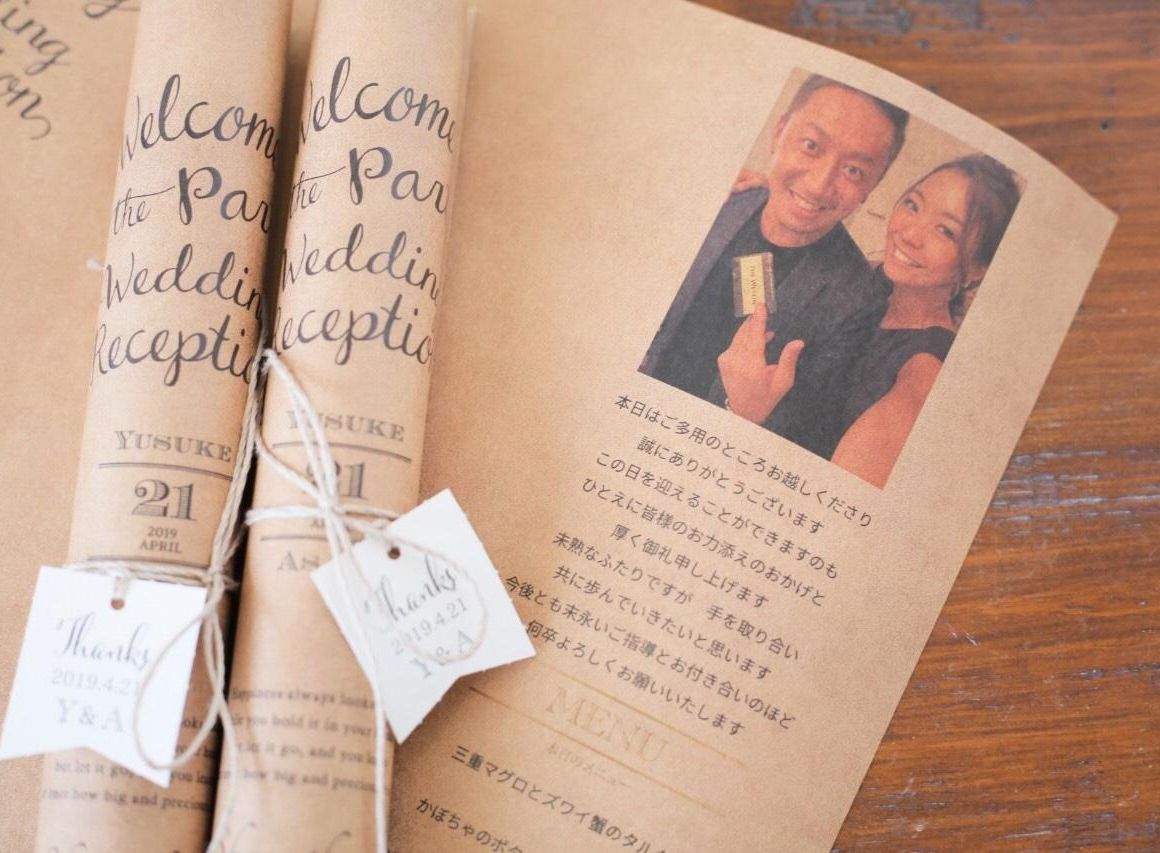 Welcom
the Par
Wedding
Recepti
YUSUKE
21
2019
APRIL
Thanks
2019.4.21
Y&A
Welcome
the Par
Wedding
Receptio
YUSUKE
21
As
Thanks
2019.4.21
Y&A
Happiness always looks
you hold it in your
let it go, and you
how big and precious
let it go, you
how big and precious
本日はご多用のところお越しくださり
誠にありがとうございます
この日を迎えることができますのも
ひとえに皆様のお力添えのおかげと
厚く御礼申し上げます
未熟なふたりですが 手を取り合い
共に歩んでいきたいと思います
今後とも末永いご指導とお付き合いのほど
何卒よろしくお願いいたします
MENU
本日のメニュー
三重マグロとズワイ蟹のタル
かぼちゃのポタ